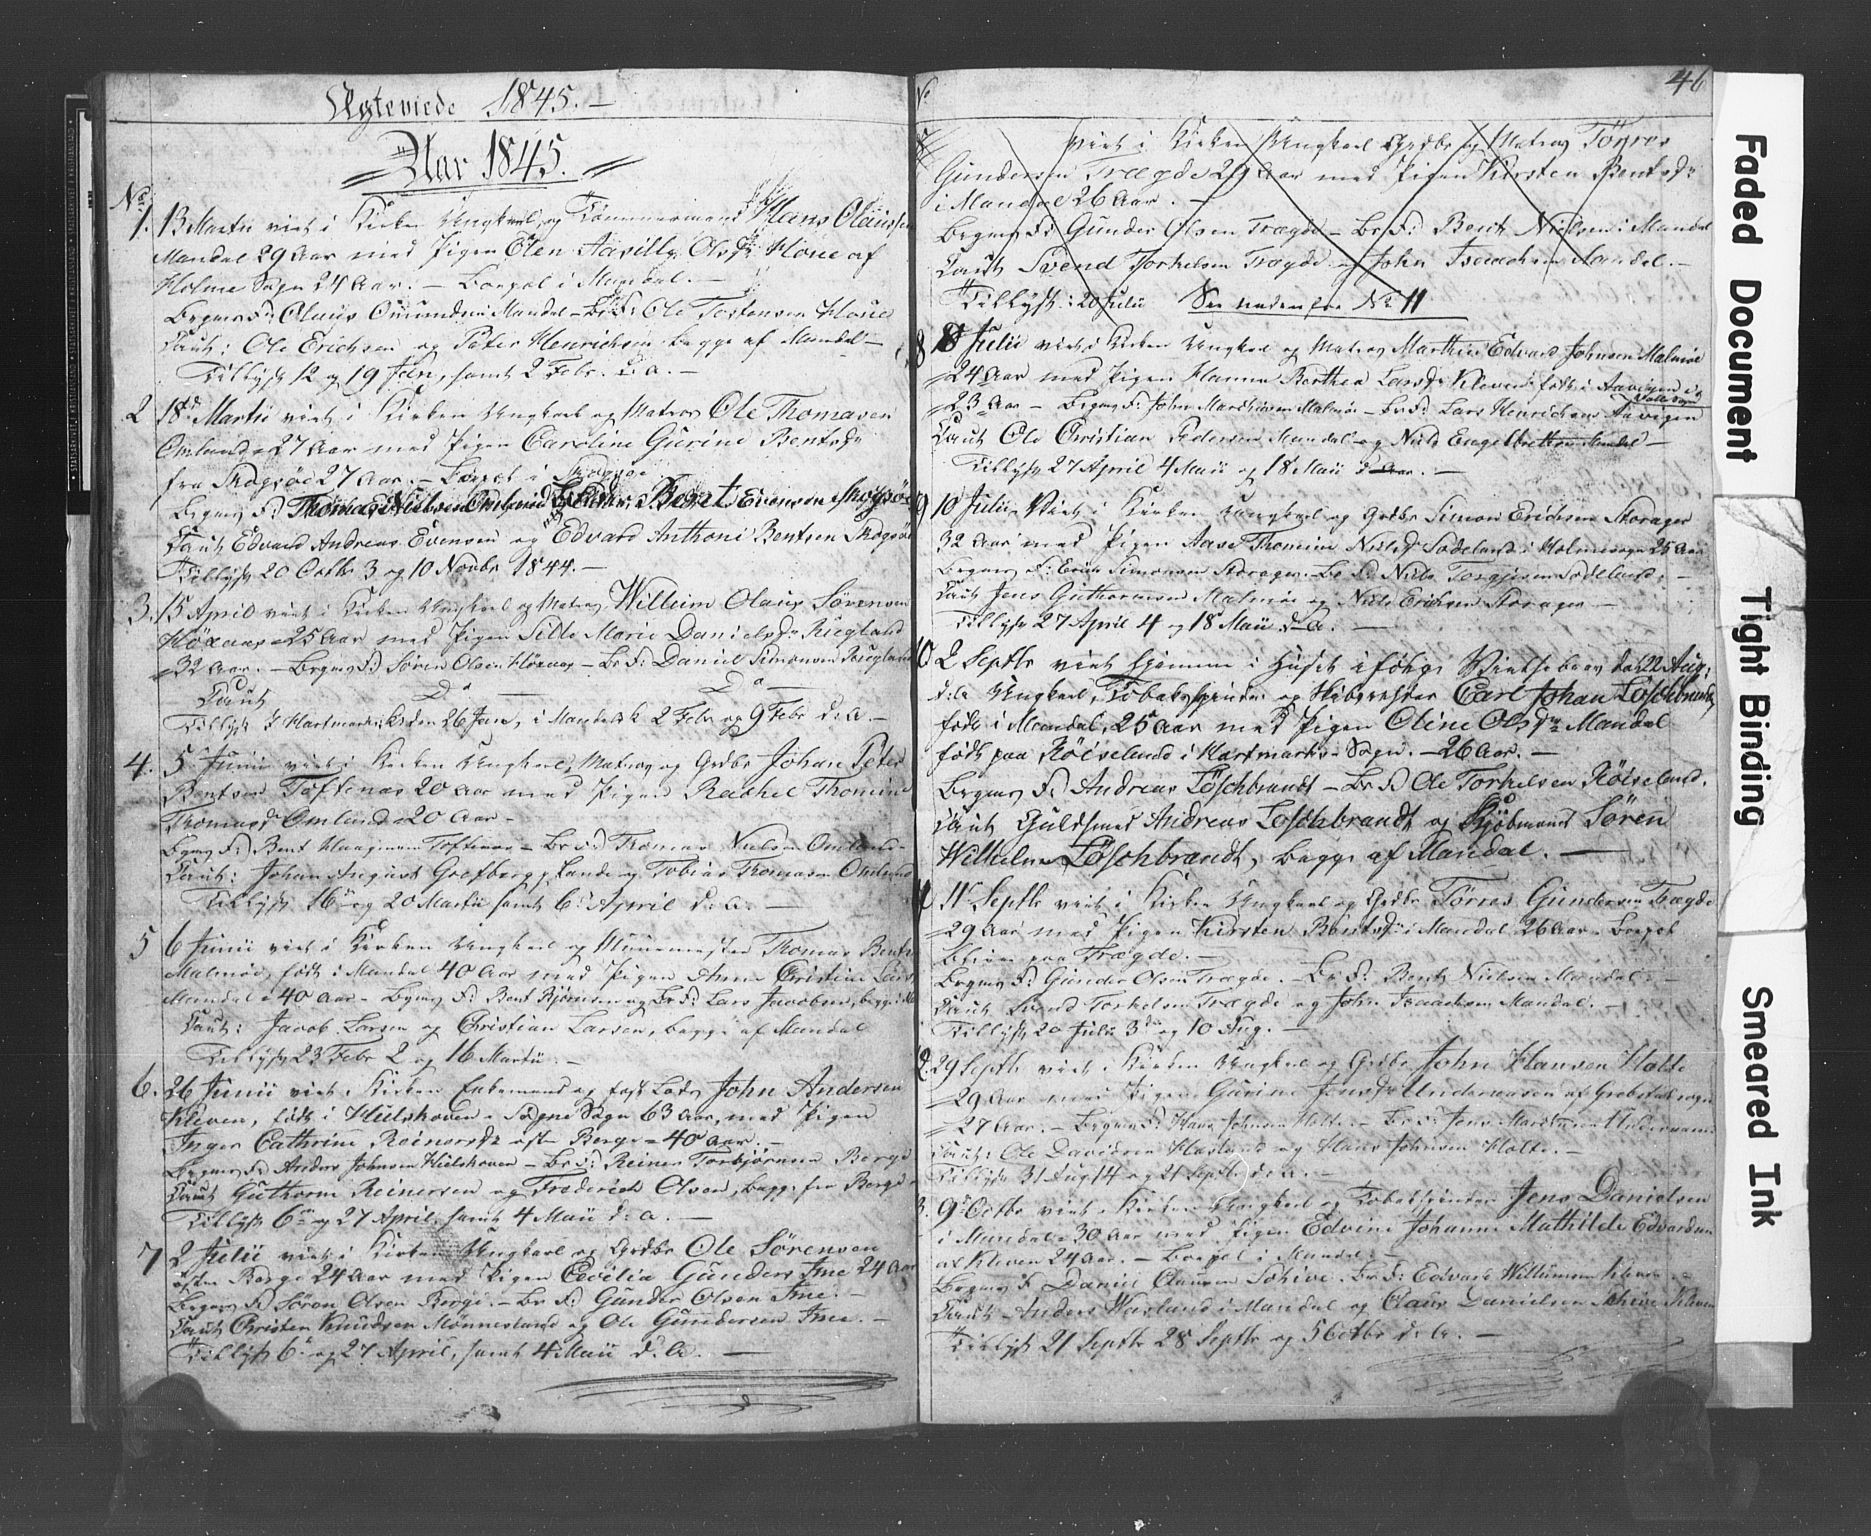 Ægteviede 1845. —
Aar 1845.
No
1. 13 Martii viet i Kirken Ungkarl og Tømmermand Hans Olaussen
Mandal 29 Aar med Pigen Olen Aasille Olsdr Houe af
Holme Sogn 24 Aar. — Boepæl i Mandal. —
Brgms F: Olaus Omundsen Mandal — Br F: Ole Tostensen Houe
Caut: Ole Erichsen og Peter Henrichsen begge af Mandal —
Tillyst 12 og 19 Jan, samt 2 Febr. d. a. —
2 18de Martii viet i Kirken Ungkarl og Matros Ole Thomasen
Omland 27 Aar med Pigen Caroline Gurine Bentsdr
fra Skogsøe 27 Aar. — Boepæl i Skogsøe
Brgms F: Thomas Nielsen Omland Br F: Bent Evensen Skogsøe
Caut Edvard Andreas Evensen og Edvard Anthoni Bentsen Skogsøe
Tillyst 20 Octbr 3 og 10 Novbr 1844. —
3. 15 April viet i Kirken Ungkarl og Matros Willum Olaus Sørensen
25 Aar med Pigen Sille Marie Danielsdr Rugland
32 Aar. — Brgms F: Søren Olsen — Br F: Daniel Simonsen Rugland
Caut Do — Do —
Tillyst i Hartmark K. den 26 Jan, i Mandals K 2 Febr og 9 Febr d. a. —
4. 5 Junii viet i Kirken Ungkarl, Matros og Grdbr Johan Peter
Bentsen Toftenæs 20 Aar med Pigen Rachel Thomine
Thomasdr Omland 20 Aar —
Brgms F: Bent Toftenæs — Br F: Thomas Nielsen Omland —
Caut: Johan August Grefberg Lande og Tobias Thomasen Omland
Tillyst 16de og 20 Martii samt 6 April d: a. —
5 6 Junii viet i Kirken Ungkarl og Muurmester Thomas Bentsen
Malmøe, født i Mandal 40 Aar med Pigen Anne Christine Lars
Mandal 40 Aar — Brgms F: Bent Bjørnsen og Br F: Lars Jacobsen, begge
Caut: Jacob Larsen og Christian Larsen, begge af Mandal
Tillyst 23 Febr 2 og 16 Martii. —
6. 26 Junii viet i Kirken Enkemand og fast Lods John Andersen
Kleven, født i Hielshoven Søgne Sogn 63 Aar, med Pigen
Inger Cathrine Reinersdr øfr Berge 40 Aar. —
Brgms F: Anders Johnsen Hielshoven — Br F: Reiner Torbjørnsen Berge
Caut Guthorm Reinersen og Frederich Olsen, begge fra Berge
Tillyst 6te og 27 April, samt 4 Maii d: a. —
7 2 Julii viet i Kirken Ungkarl og Grdbr Ole Sørensen
øfre Berge 24 Aar med Pigen Cecilia Gunders Ime 24 Aar
Brgms F: Søren Olsen Berge. — Br F: Gunder Olsen Ime. —
Caut Christen Knudsen Mønnesland og Ole Gundersen Ime. —
Tillyst 6te og 27 April, samt 4 Maii d. a. —
No 46
viet i Kirken Ungkarl Grdbr og Matros Tønres
Gundersen Trægde 29 Aar med Pigen Kirsten Bentsdr
i Mandal 26 Aar. —
Brgms F: Gunder Olsen Trægde — Br F: Bent Nielsen i Mandal
Caut Svend Torkelsen Trægde og John Isaachsen Mandal. —
Tillyst: 20 Julii See nedenfor No 11
8 10 Julii viet i Kirken Ungkarl og Matros Mathias Edvard Johnsen Malmøe
24 Aar med Pigen Hanna Barthea Larsdr Kleven født i Aavigen i
23 Aar — Brgms F: John Malmøe — Br F: Lars Henrichsen Aavigen
Caut Ole Christian Pedersen Mandal og Niels Engelbretsen Mandal —
Tillyst 27 April 4 Maii og 18 Maii d. Aar. —
9 10 Julii Viet i Kirken Ungkarl og Grdbr Simon Erichsen Storager
32 Aar med Pigen Aase Thomine Nielsdr Sødeland i Holme Sogn 25 Aar
Brgms F: Erich Simonsen Storager. Br F: Niels Torgjersen Sødeland. —
Caut Jens Guthormsen Malmøe og Niels Erichsen Storager —
Tillyst 27 April 4 og 18 Maii d. a. —
10 2 Septbr viet hjemme i Huset ifølge Vielsebrev dat 22 Aug:
d: a Ungkarl, Tobakspinder og Carl Johan Løschbrandt
født i Mandal, 25 Aar med Pigen Oline Olsdr Mandal
født paa Røiseland i Hartmarks Sogn. — 26 Aar. —
Brgms F: Andreas Løschbrandt — Br F: Ole Torkelsen Røiseland.
Caut Guldsmed Andreas Løschbrandt og Kjøbmand Søren
Wilhelm Løschbrandt, begge af Mandal. —
11 11 Septbr viet i Kirken Ungkarl og Grdbr Tørres Gundersen Trægde
29 Aar med Pigen Kirsten Bentsdr i Mandal 26 Aar — Boepæl
bliver paa Trægde. —
Brgms F: Gunder Olsen Trægde. — Br F: Bent Nielsen Mandal. —
Caut Svend Torkelsen Trægde og John Isaachsen Mandal. —
Tillyst 20 Julii 3die og 10 Aug. —
12. 29 Septbr viet i Kirken Ungkarl og Grdbr John Hansen Holte
29 Aar med Pigen Gurine Jensdr Underaasen af Grebstad sogn
27 Aar. — Brgms F: Hans Johnsen Holte. — Br F: Jens
Caut: Ole Davidsen Hasland og Hans Johnsen Holte. —
Tillyst 31 Aug 14 og 21 Septbr d: a. —
3. 9de Octbr viet i Kirken Ungkarl og Tobakspinder Jens Danielsen
i Mandal 30 Aar med Pigen Edvine Johanne Mathilde Edvardsen
af Kleven 24 Aar. — Boepæl i Mandal. —
Brgms F: Daniel Clausen Schive. Br F: Edvard Willumsen Kleven. —
Caut Anders Hasland i Mandal og Claus Danielsen Schive Kleven
Tillyst 21 Septbr 28 Septbr og 5 Octbr d. a. —
Faded Document
Tight Binding
Smeared Ink